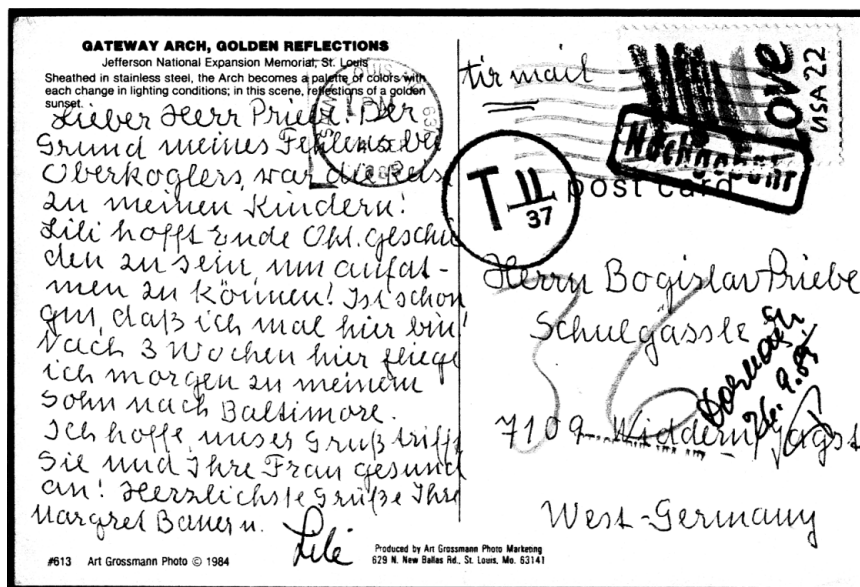 GATEWAY ARCH, GOLDEN REFLECTIONS
Jefferson National Expansion Memorial, St. Louis
Sheathed in stainless steel, the Arch becomes a palette of colors with
each change in lighting conditions; in this scene, reflections of a golden
sunset.
Lieber Herr Priebe! Der
Grund meines Fehlens bei
Oberkoglers, war die Reise
zu meinen Kindern!
Lili hofft Ende Okt. geschie
den zu sein, um aufat-
men zu können! Ist schon
gut, daß ich mal hier bin!
Nach 3 Wochen hier fliege
ich morgen zu meinem
Sohn nach Baltimore.
Ich hoffe, unser Gruß trifft
Sie und Ihre Frau gesund
an! Herzlichste Grüße Ihre
Margret Bauer u.
Lili
#613 Art Grossmann Photo © 1984
Produced by Art Grossmann Photo Marketing
629 N. New Ballas Rd., St. Louis, Mo. 63141
air mail
Love
USA 22
Nachgebühr
T 11
37
post card
Herrn Bogislav Priebe
Schulgässle
36
7109 Widdern/Jagst
West-Germany